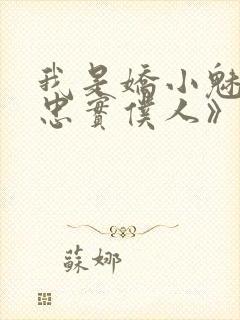 我是嬌小魅
忠實僕人》
蘇娜